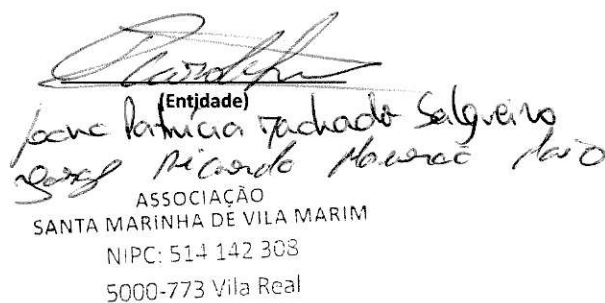 (Entidade)
Joana Patrícia Machado Salgueiro
Jorge Ricardo
ASSOCIAÇÃO
SANTA MARINHA DE VILA MARIM
NIPC: 514 142 308
5000-773 Vila Real